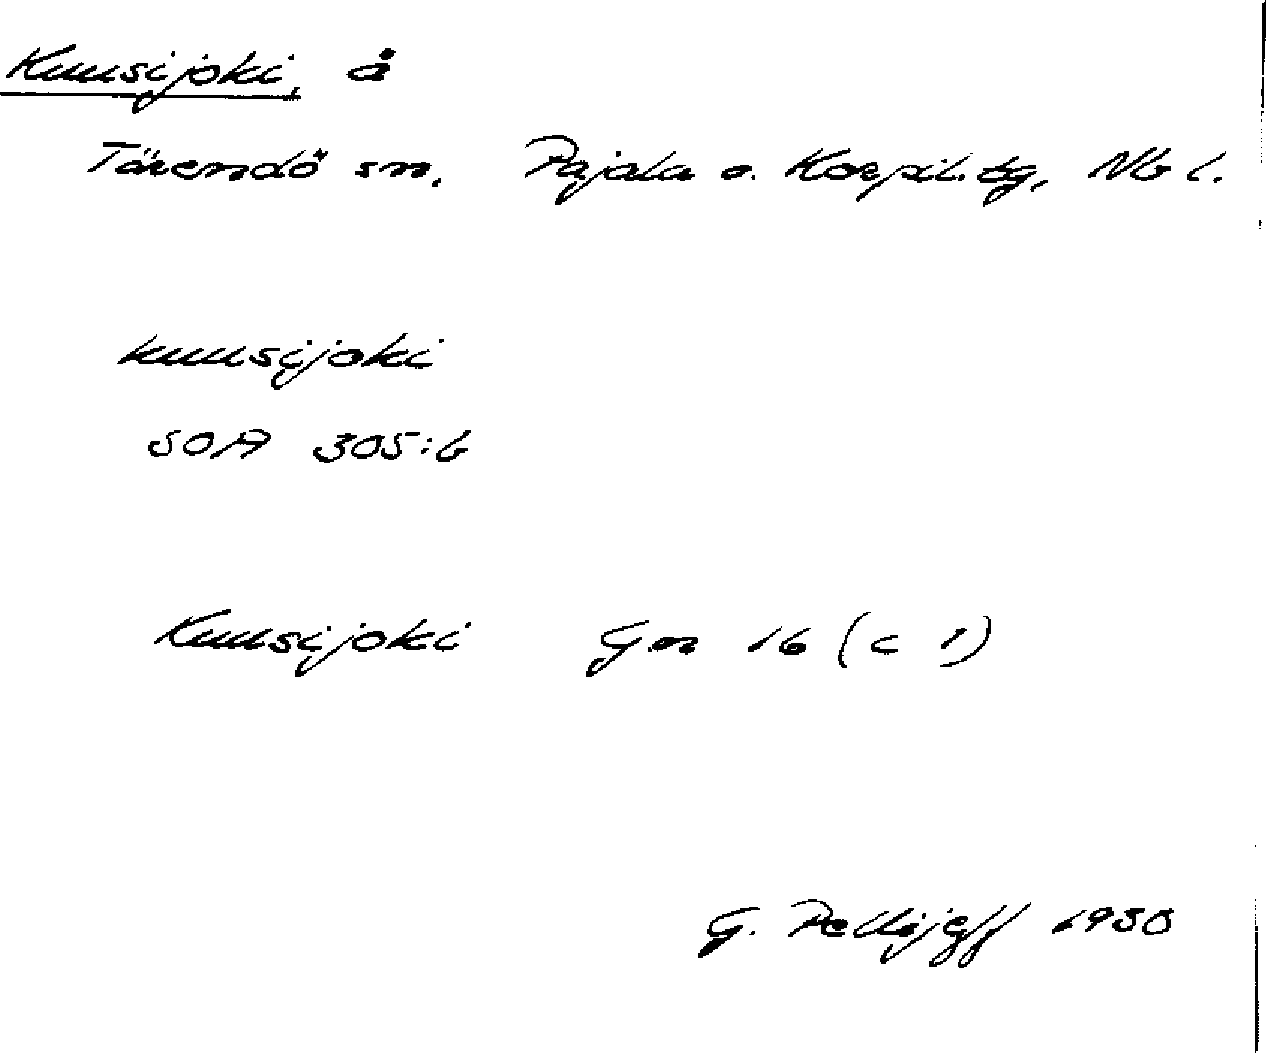 Kuusijoki, å
Tärendö sn, Pajala o. Korpil. tg, Nb l.
kuusijoki
SOA 305:6
Kuusijoki Gen 16 (c 1)
G. Pellijeff 1950